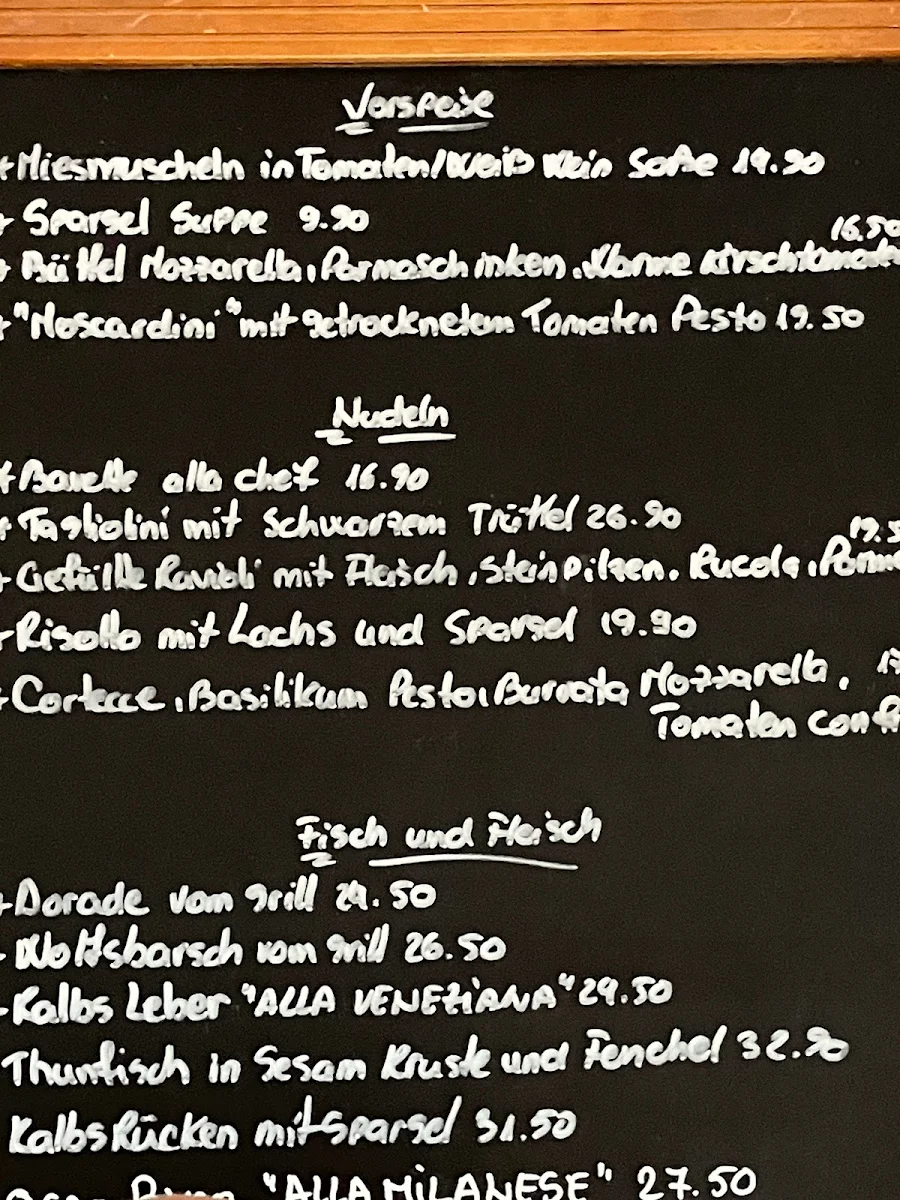 Vorspeise
+ Miesmuscheln in Tomaten/Weiß Wein Soße 19.90
+ Sparsel Suppe 9.90
16.50
+ Büffel Mozzarella, Parmaschinken, Warme Kirschtomate
+ "Moscardini" mit getrocknetem Tomaten Pesto 19.50
Nudeln
+ Bavette alla chef 16.90
+ Tagliolini mit Schwarzem Trüffel 26.90
19.5
+ Gefüllte Ravioli mit Fleisch, Steinpilzen, Rucola, Parme
+ Risotto mit Lachs und Sparsel 19.90
+ Cortecce, Basilikum Pesto, Burrata Mozzarella,
Tomaten confi
Fisch und Fleisch
+ Dorade vom grill 24.50
- Wolfsbarsch vom grill 26.50
- Kalbs Leber "ALLA VENEZIANA" 29.50
Thunfisch in Sesam Kruste und Fenchel 32.90
Kalbs Rücken mit Sparsel 31.50
"ALLA MILANESE" 27.50